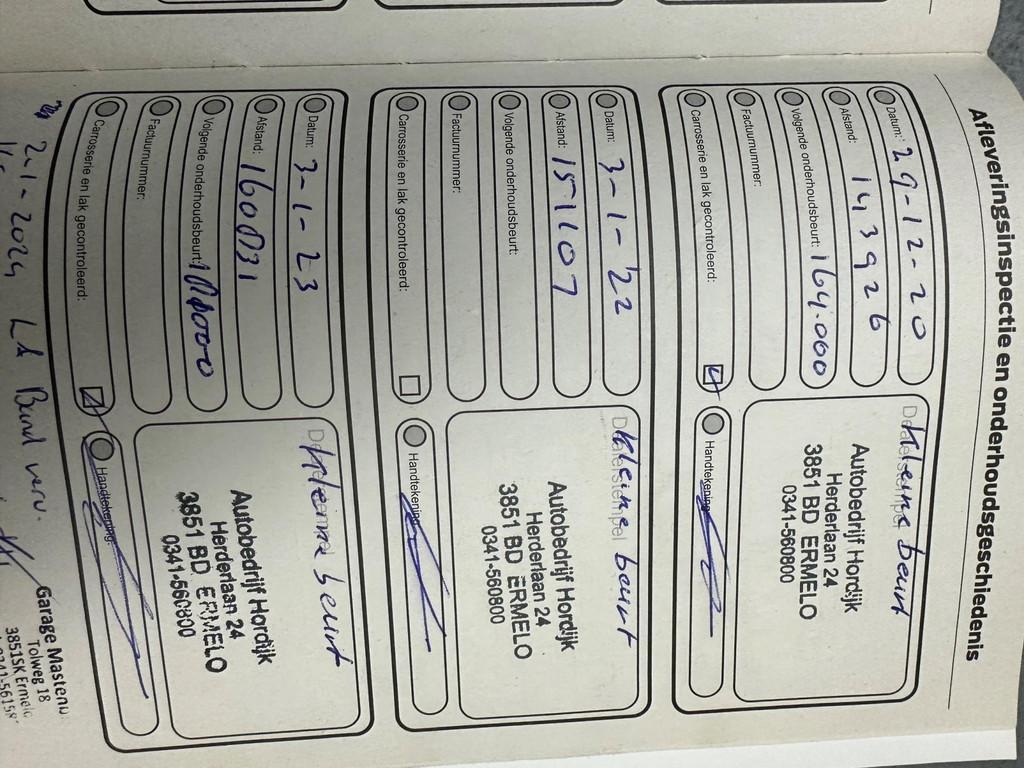 Afleveringsinspectie en onderhoudsgeschiedenis
Datum: 29-12-20
Afstand: 143926
Volgende onderhoudsbeurt: 164.000
Factuurnummer:
Carrosserie en lak gecontroleerd:
Dealerstempel
kleine beurt
Autobedrijf Hordijk
Herderlaan 24
3851 BD ERMELO
0341-560800
Handtekening:
Datum: 3-1-'22
Afstand: 151107
Volgende onderhoudsbeurt:
Factuurnummer:
Carrosserie en lak gecontroleerd:
Dealerstempel
kleine beurt
Autobedrijf Hordijk
Herderlaan 24
3851 BD ERMELO
0341-560800
Handtekening:
Datum: 3-1-23
Afstand:
Volgende onderhoudsbeurt:
Factuurnummer:
Carrosserie en lak gecontroleerd:
kleine beurt
Autobedrijf Hordijk
Herderlaan 24
3851 BD ERMELO
0341-560800
Handtekening:
2-1-2024 LA Band verv.
Garage Mastenb
Tolweg 18
3851SK Ermelo
0341-5615